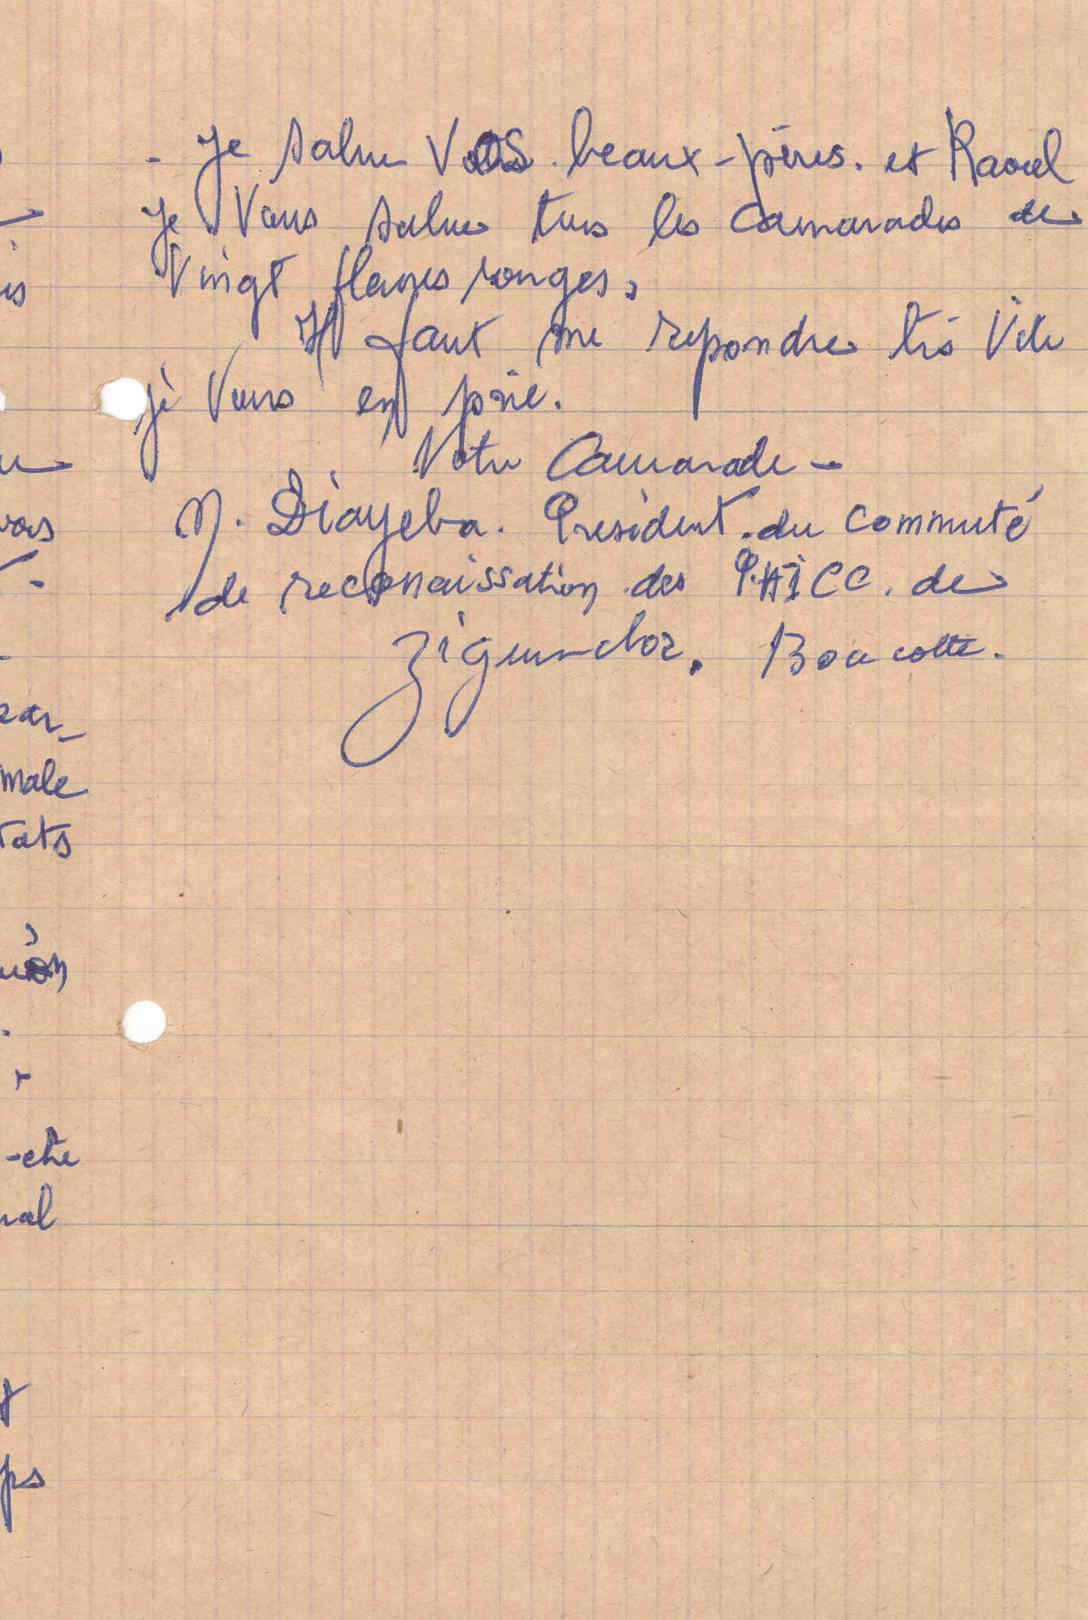 - Je salue Vos beaux-pères. et Raoul
Je Vous salue tous les camarades de
Vingt flames rouges,
Il faut me repondre trés Vite
jè Vous en prie.
Votre Camarade -
N. Diayeba. President. du Commuté
de reconaissation des P.A.I.C.C. de
Ziguinchor. Boucotte.
vous
male
tats
-che
nal
ps